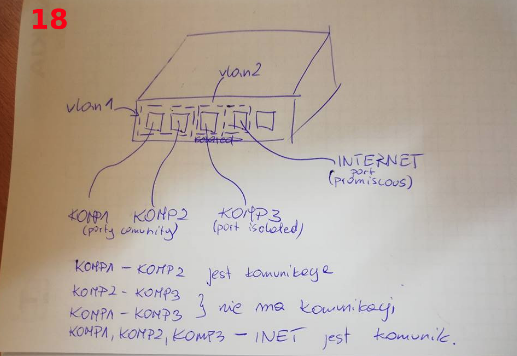 18
vlan2
vlan1
isolated
INTERNET
port
(promiscous)
KOMP1 KOMP2 KOMP3
(porty comunity) (port isolated)
KOMP1 - KOMP2 jest komunikacja
KOMP2 - KOMP3
KOMP1 - KOMP3 } nie ma komunikacji
KOMP1, KOMP2, KOMP3 - INET jest komunik.